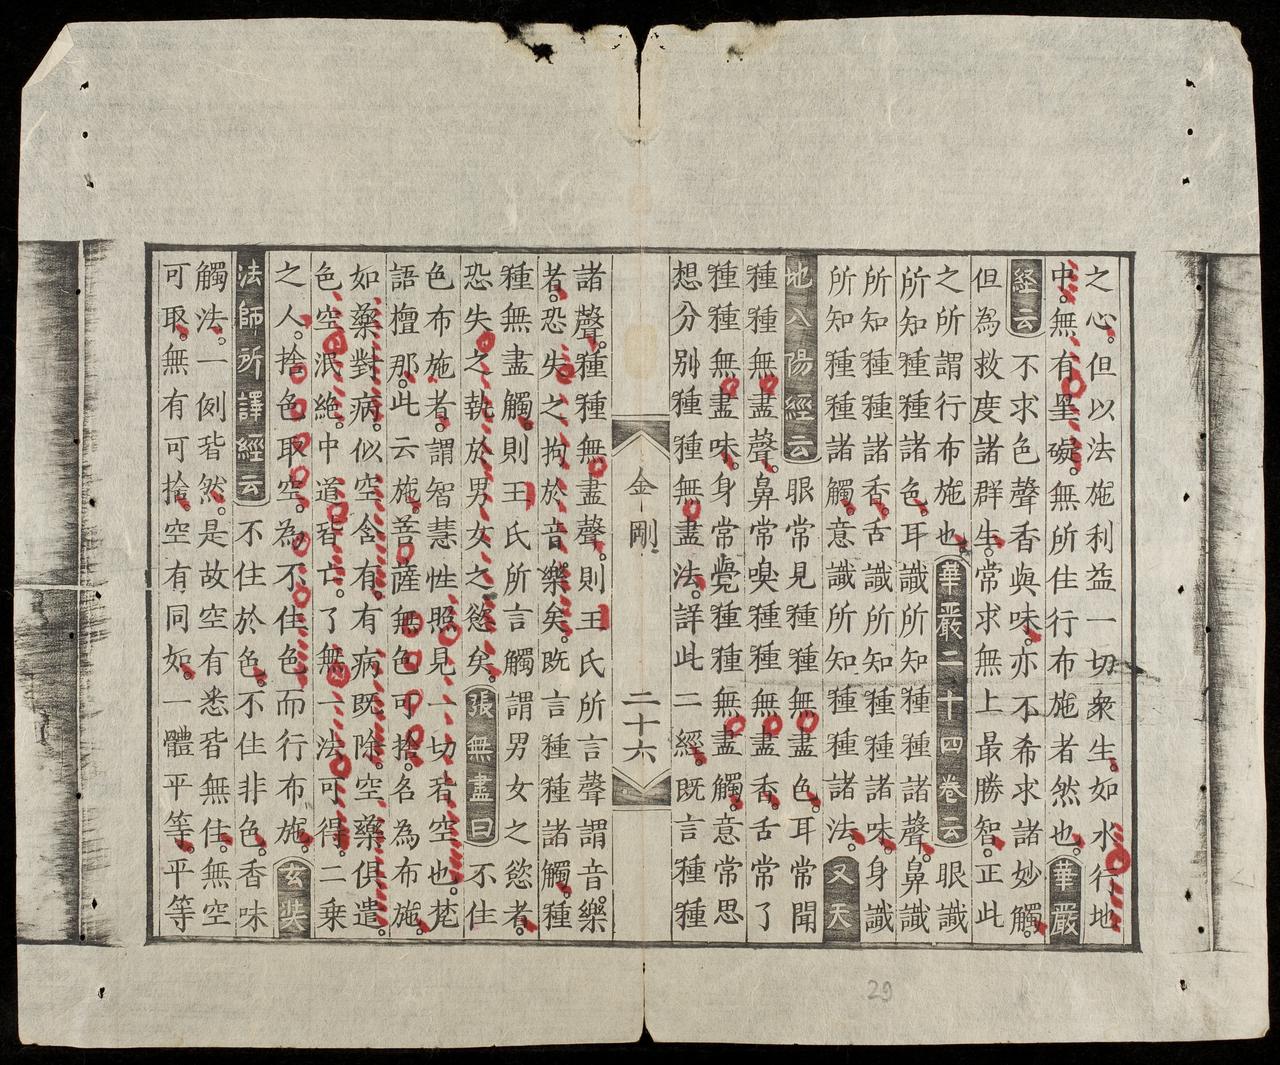 之心。但以法施利益一切衆生。如水行地
中。無有罣礙。無所住行布施者然也。華嚴
經云不求色聲香與味。亦不希求諸妙觸。
但為救度諸群生。常求無上最勝智。正此
之所謂行布施也。華嚴二十四卷云眼識
所知種種諸色。耳識所知種種諸聲。鼻識
所知種種諸香。舌識所知種種諸味。身識
所知種種諸觸。意識所知種種諸法。又天
地八陽經云眼常見種種無盡色。耳常聞
種種無盡聲。鼻常嗅種種無盡香。舌常了
種種無盡味。身常覺種種無盡觸。意常思
想分別種種無盡法。詳此二經。既言種種
金剛
二十六
諸聲。種種無盡聲。則王氏所言聲謂音樂
者。恐失之拘於音樂矣。既言種種諸觸。種
種無盡觸。則王氏所言觸謂男女之慾者。
恐失之執於男女之慾矣。張無盡曰不住
色布施者。謂智慧性照見一切皆空也。梵
語檀那。此云施。菩薩無色可捨。名為布施。
如藥對病。似空含有。有病既除。空藥俱遣。
色空泯絕。中道皆亡。了無一法可得。二乗
之人。捨色取空。為不住色而行布施。玄奘
法師所譯經云不住於色。不住非色。香味
觸法。一例皆然。是故空有悉皆無住。無空
可取。無有可捨。空有同如。一體平等。平等
29